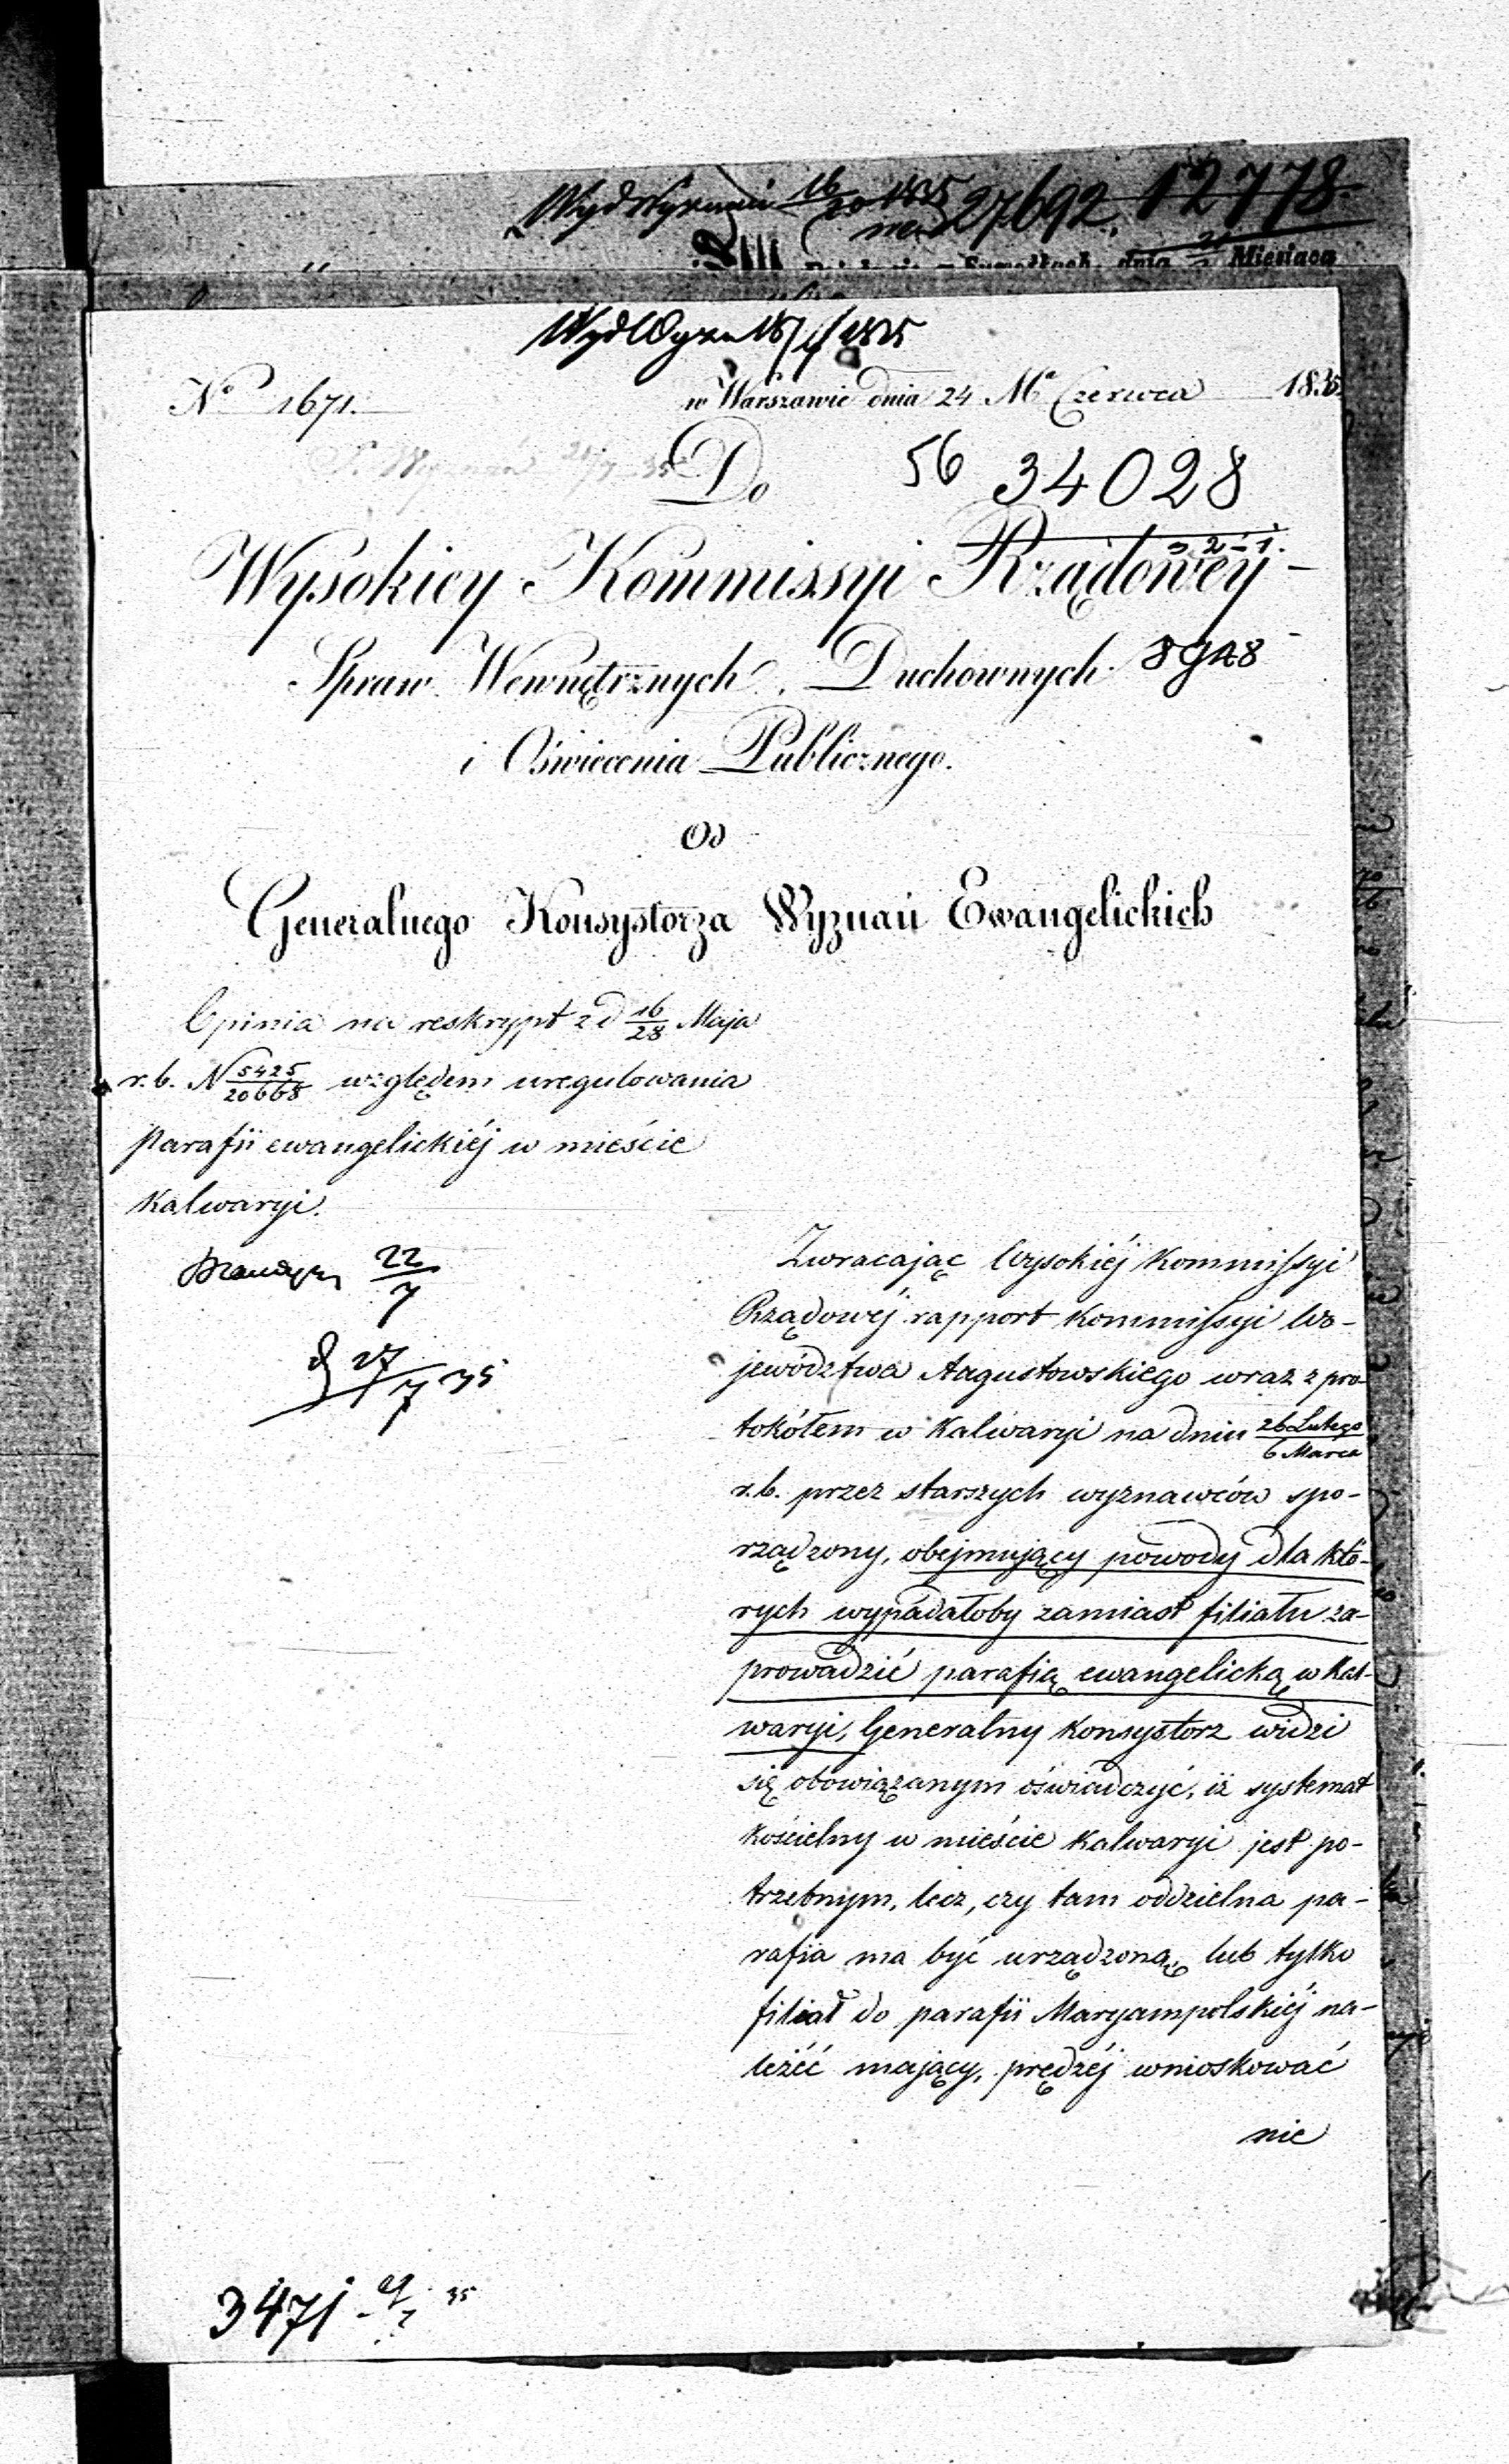 27692. 12778.
Miesiąca
No 1671.
w Warszawie dnia 24 Ma Czerwca 1835.
Do
56 34028
Wysokiey Kommissyi Rządowey
Spraw Wewnętrznych, Duchownych
i Oświecenia Publicznego.
Od
Generalnego Konsystorza Wyznań Ewangelickich
Opinia na reskrypt z d 16/28 Maja
r. b. N 5425/20668 względem uregulowania
parafii ewangelickiéj w mieście
Kalwaryi.
22/7
27/7 35
Zwracając Wysokiéj Kommissyi
Rządowéj rapport Kommissyi Wo-
jewództwa Augustowskiego wraz z pro-
tokółem w Kalwaryi na dniu 26 Lutego/6 Marca
r. b. przez starszych wyznawców spo-
rządzony, obejmujący powody dla któ-
rych wypadałoby zamiast filiału za-
prowadzić parafią ewangelicką w Kal-
waryi, Generalny Konsystorz widzi
się obowiązanym oświadczyć, iż systemat
kościelny w mieście Kalwaryi jest po-
trzebnym, lecz, czy tam oddzielna pa-
rafia ma być urządzoną, lub tylko
filiał do parafii Maryampolskiéj na-
leżéć mający, prędzéj wnioskować
nie
3471 35